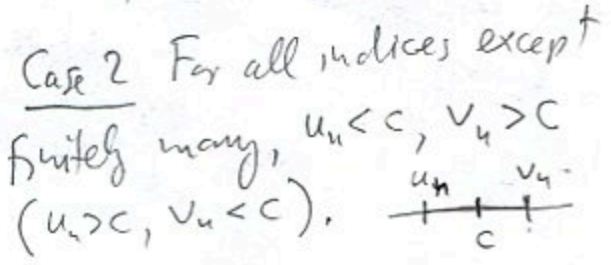 Case 2 For all indices except
finitely many, uₙ < c, vₙ > c
(uₙ > c, vₙ < c).
uₙ vₙ
c